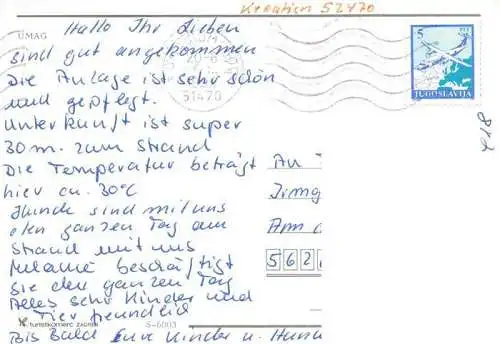 Kroatien 52470
UMAG
Hallo Ihr Lieben
sind gut angekommen
Die Anlage ist sehr schön
und gepflegt.
Unterkunft ist super
30 m. zum Strand
Die Temperatur beträgt
hier ca. 30°C
Hunde sind mit uns
den ganzen Tag am
Strand mit uns
Melanie beschäftigt
Sie den ganzen Tag
Alles sehr Kinder und
Tier freundlid
Bis Bald Eure Kinder u. Hun
turistkomerc zagreb
S-6003
51470
5
PTT
JUGOSLAVIJA
218
An
Irmg
Am
562